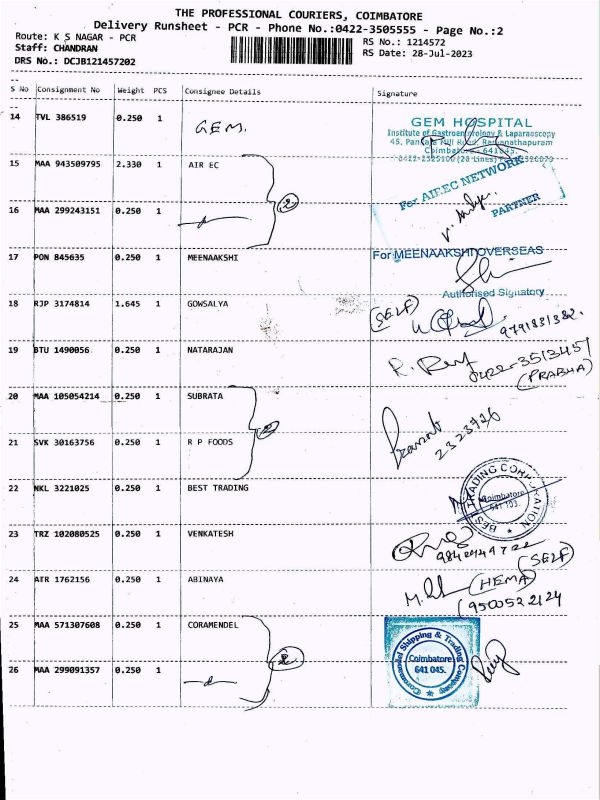 THE PROFESSIONAL COURIERS, COIMBATORE
Delivery Runsheet - PCR - Phone No.:0422-3505555 - Page No.:2
Route: K S NAGAR - PCR
RS No.: 1214572
Staff: CHANDRAN
RS Date: 28-Jul-2023
DRS No.: DCJB121457202
S No Consignment No Weight PCS Consignee Details Signature
14 TVL 386519 0.250 1 GEM.
GEM HOSPITAL
Institute of Gastroenterology & Laparaoscopy
45, Pankaja Mill Road, Ramanathapuram
Coimbatore - 641045.
15 MAA 943509795 2.330 1 AIR EC
For AIEEC NETWORK
PARTNER
16 MAA 299243151 0.250 1
2
17 PON 845635 0.250 1 MEENAAKSHI
For MEENAAKSHI OVERSEAS
Authorised Signatory
18 RJP 3174814 1.645 1 GOWSALYA
(SELF)
9791831382.
19 BTU 1490056 0.250 1 NATARAJAN
0422-3513451
(PRABHA)
20 MAA 105054214 0.250 1 SUBRATA
2
2323726
21 SVK 30163756 0.250 1 R P FOODS
22 NKL 3221025 0.250 1 BEST TRADING
BEST TRADING CORPORATION
Coimbatore
641 103.
23 TRZ 102080525 0.250 1 VENKATESH
(SELF)
24 ATR 1762156 0.250 1 ABINAYA
(HEMA)
(9500522124
25 MAA 571307608 0.250 1 CORAMENDEL
2
Coromandel Shipping & Trading Company
Coimbatore
641 045.
26 MAA 299091357 0.250 1